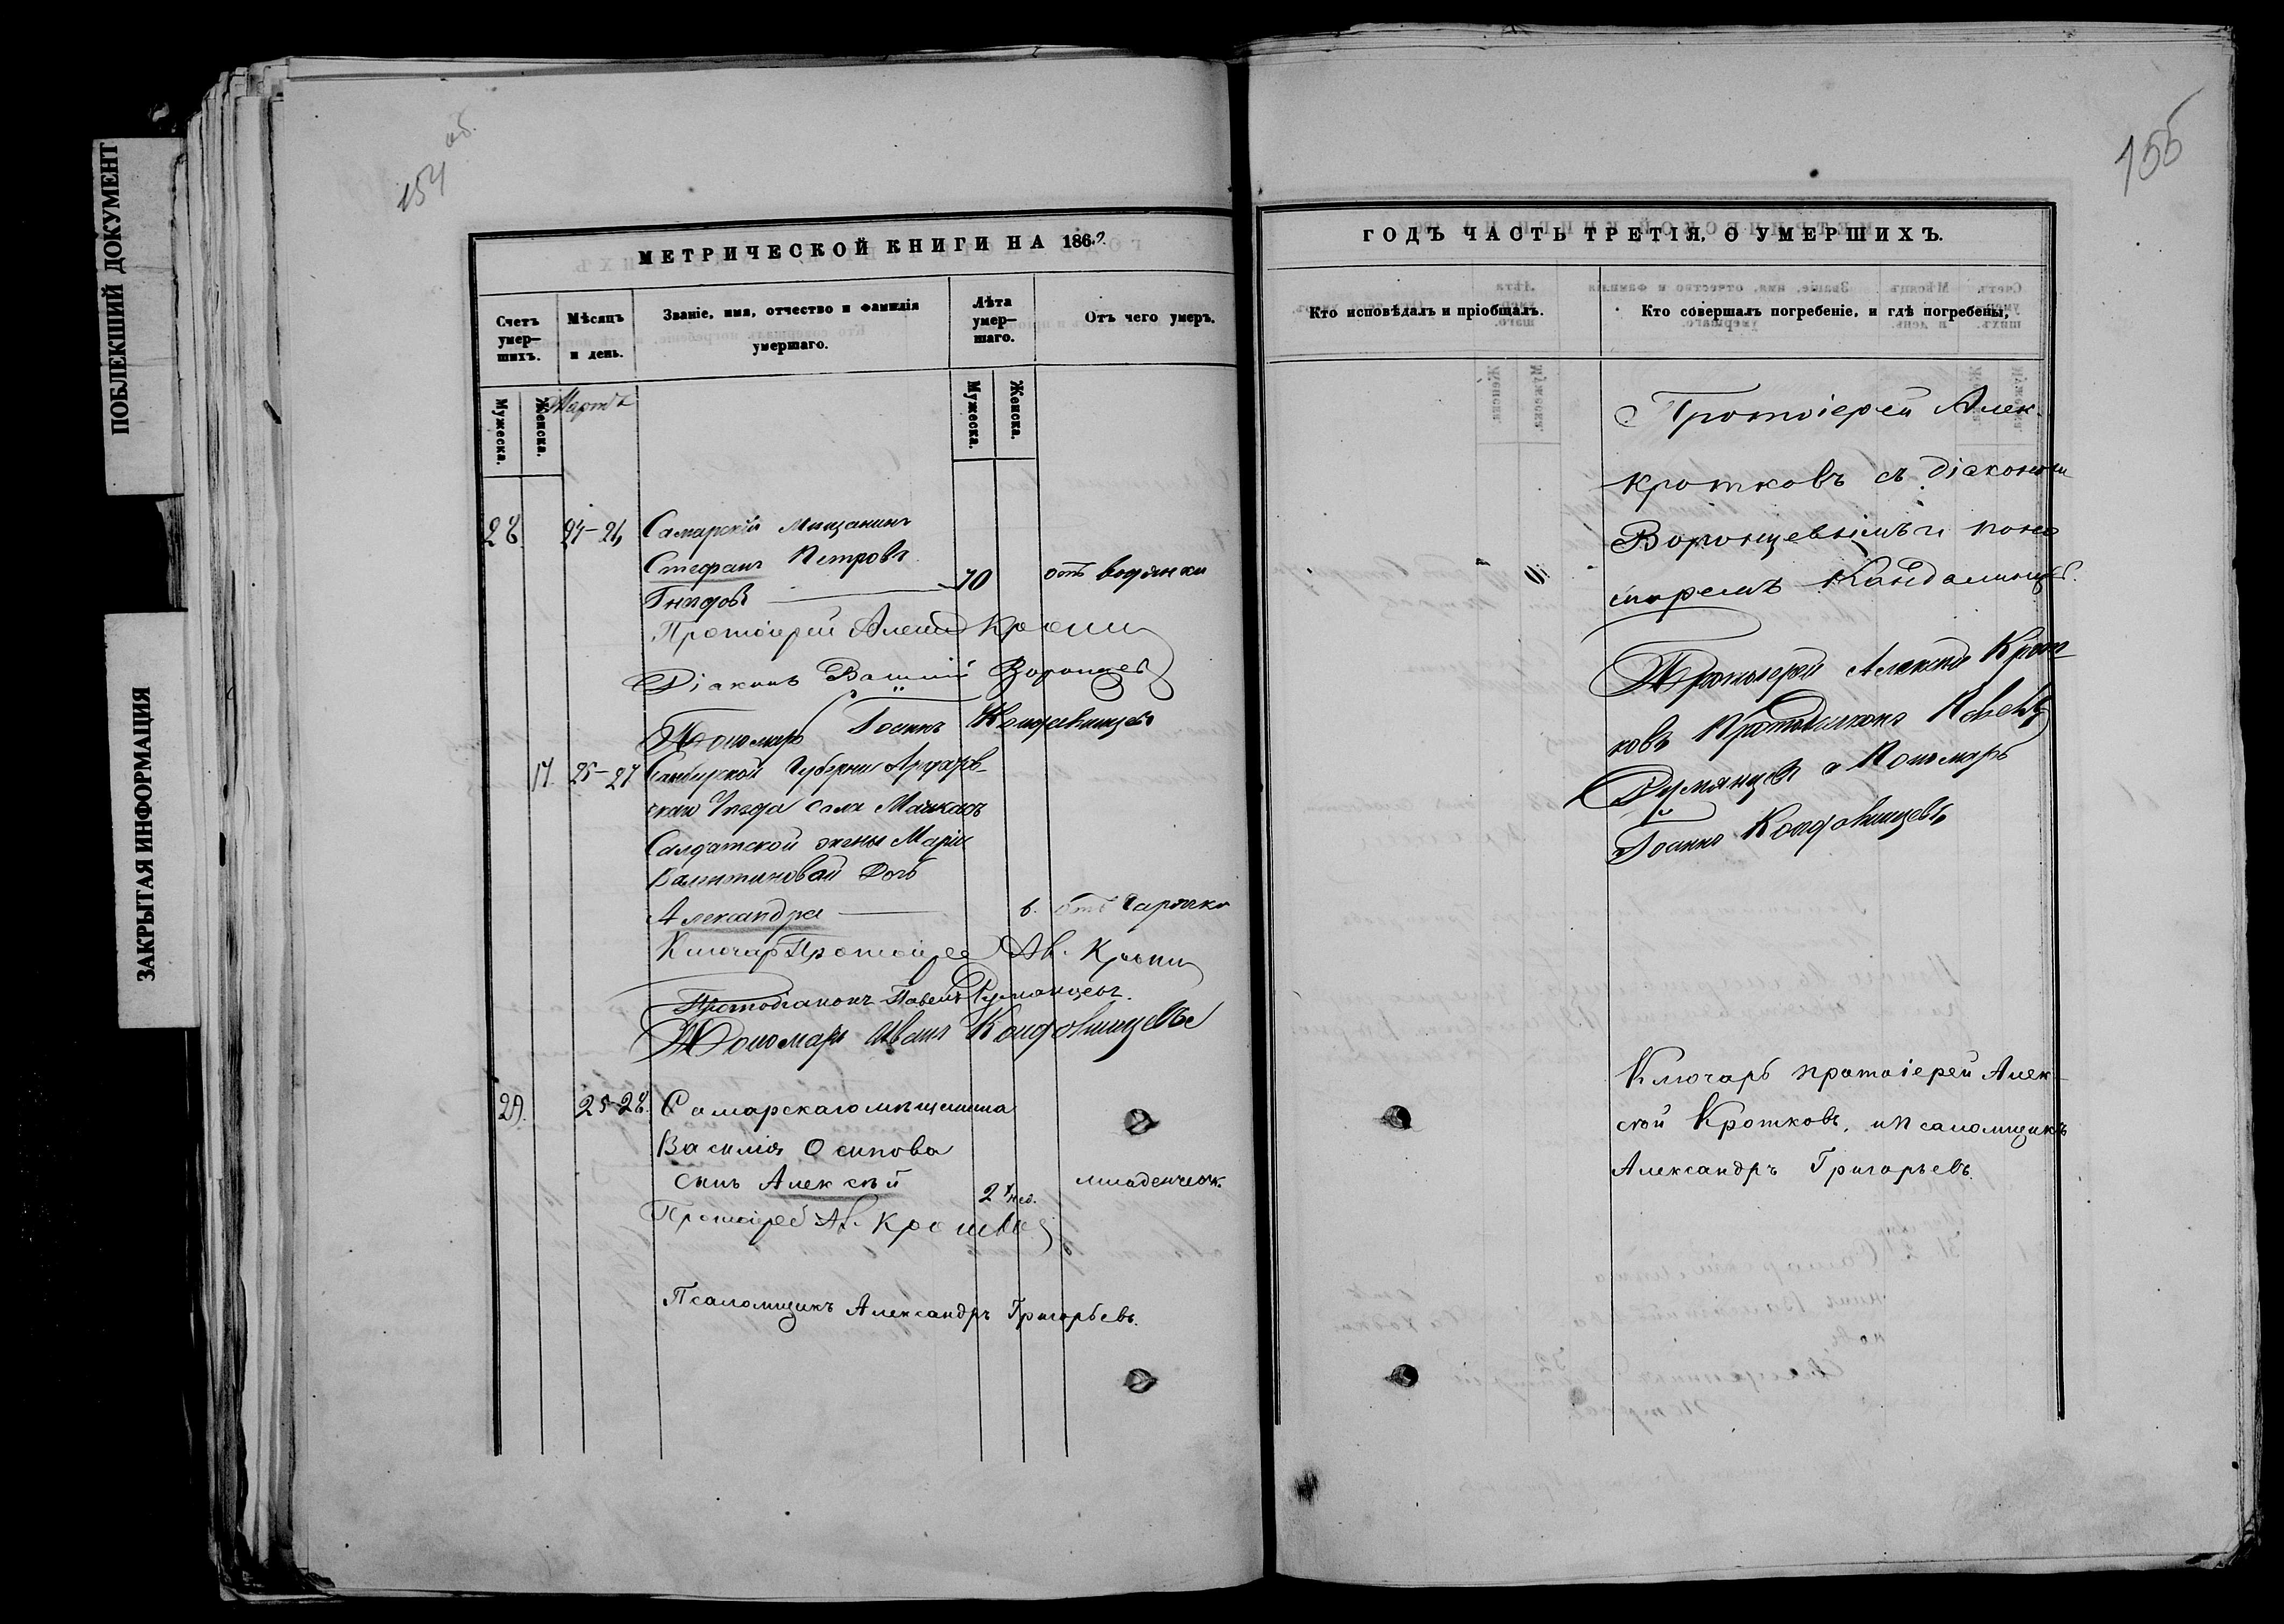 ПОБЛЕКШИЙ ДОКУМЕНТ
ЗАКРЫТАЯ ИНФОРМАЦИЯ
154 об.
МЕТРИЧЕСКОЙ КНИГИ НА 1862
Счетъ умер-шихъ.
Мѣсяцъ и день.
Званіе, имя, отчество и фамилія умершаго.
Лѣта умер-шаго.
Отъ чего умеръ.
Мужеска.
Женска.
Мужеска.
Женска.
Мартъ
28. 24-26 Самарскій мѣщанинъ
Стефанъ Петровъ
70 отъ водянки
Протоіерей
Діаконъ Воронцевъ
Пономарь Іоаннъ Кандалинцевъ
17. 25-27 Симбирской Губерніи Ардатов-
скаго Уѣзда села
Салдатской жены Маріи
Валентиновой дочь
Александра 6. отъ Горячки
Ключарь Протоіерей
Протодіаконъ Павелъ Румянцевъ.
Пономарь Иванъ Кандалинцевъ
29. 25-28. Самарскаго мѣщанина
Василія Осипова
сынъ Алексѣй 2 нед. младенческ.
Протоіерей Ал. Кротковъ
Псаломщикъ Александръ Григорьевъ.
155
ГОДЪ ЧАСТЬ ТРЕТІЯ, О УМЕРШИХЪ.
Кто исповѣдалъ и пріобщалъ.
Кто совершалъ погребеніе, и гдѣ погребены,
Протоіерей Алек.
Кротковъ съ діакономъ
Воронцевымъ и поно
маремъ Кандалинцев.
Протоіерей Алексѣй Крот-
ковъ Протодіаконъ Павелъ
Румянцевъ и Пономарь
Іоаннъ Кандалинцевъ
Ключарь протоіерей Алек-
сѣй Кротковъ, и псаломщикъ
Александръ Григорьевъ.